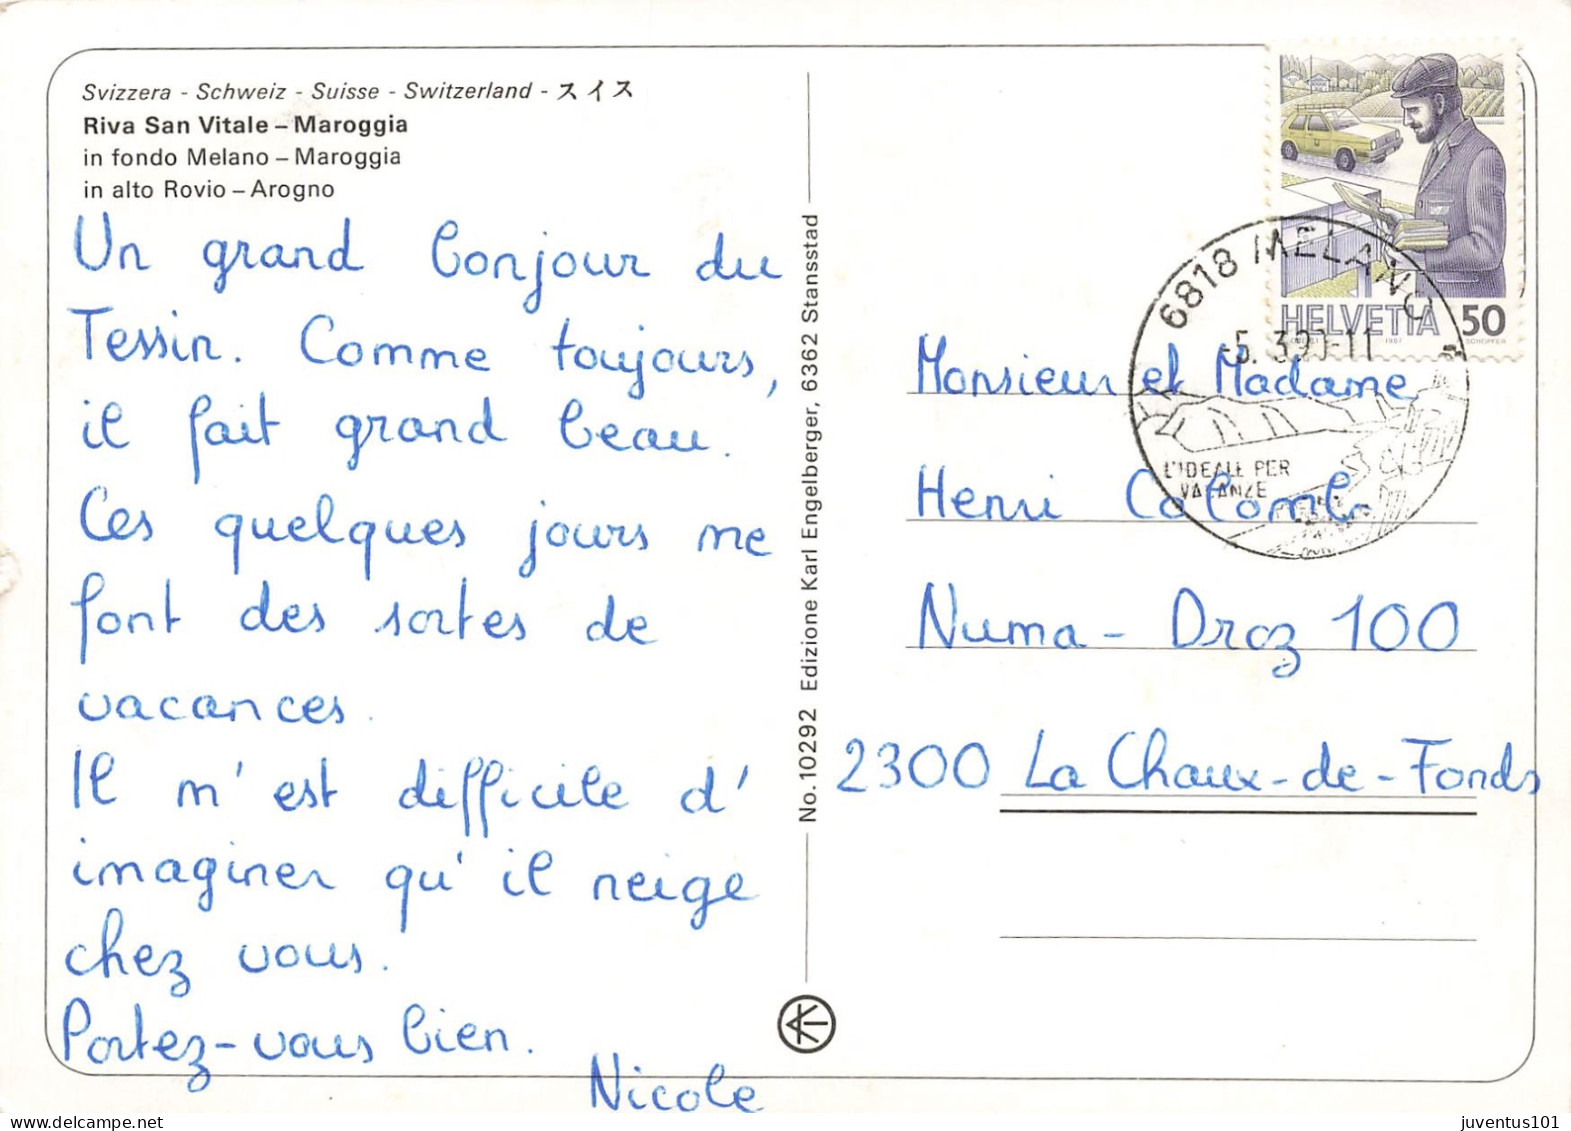 Svizzera - Schweiz - Suisse - Switzerland - スイス
Riva San Vitale – Maroggia
in fondo Melano – Maroggia
in alto Rovio – Arogno
Un grand bonjour du
Tessin. Comme toujours,
il fait grand beau.
Ces quelques jours me
font des sortes de
vacances.
Il m'est difficile d'
imaginer qu'il neige
chez vous.
Portez-vous bien.
Nicole
No. 10292 Edizione Karl Engelberger, 6362 Stansstad
HELVETIA 50
1987
6818 MELANO
-5. 3.90-11
L'IDEALE PER
VACANZE
Monsieur et Madame
Henri Colomb
Numa-Droz 100
2300 La Chaux-de-Fonds
juventus101